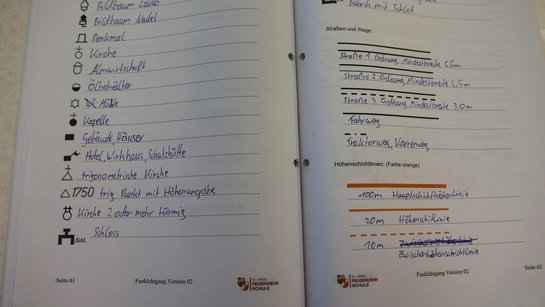 Bildbaum Laub
Bildbaum Nadel
Denkmal
Kirche
Almwirtschaft
Ölbehälter
Mühle
Kapelle
Gebäude, Häuser
Hotel, Wirtshaus, Schutzhütte
trigonometrische Kirche
1750 trig. Punkt mit Höhenangabe
Kirche 2 oder mehr türmig
Schl. Schloss
Seite 61 Funklehrgang Version 02 FEUERWEHR SCHULE
Fabrik mit Schlot
Straßen und Wege:
Straße 1. Ordnung Mindestbreite 5,5m
Straße 2 Ordnung Mindestbreite 4,5m
Straße 3 Ordnung Mindestbreite 3,0m
Fahrweg
Traktorweg, Karrenweg
Höhenschichtlinien: (Farbe orange)
100m Hauptschichthöhenlinie
20m Höhenschitlinie
10m
Zwischerhöhenschichtlinie
Funklehrgang Version 02 FEUERWEHR SCHULE Seite 62